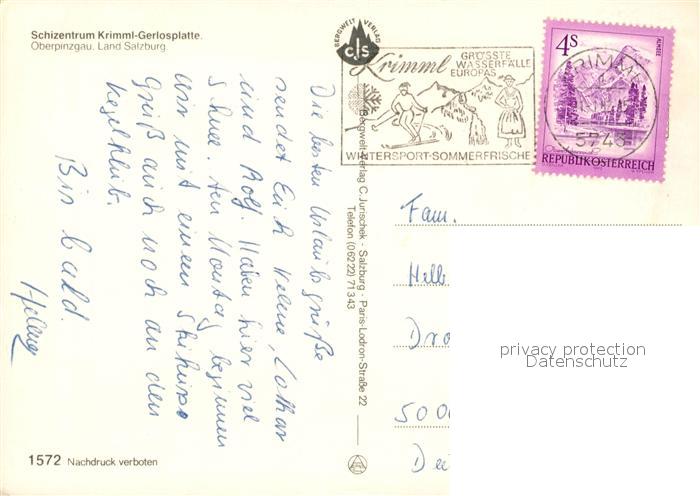 Schizentrum Krimml-Gerlosplatte.
Oberpinzgau. Land Salzburg.
BERGWELT VERLAG
cJs
Krimml GRÖSSTE
WASSERFÄLLE
EUROPAS
WINTERSPORT-SOMMERFRISCHE
4S
ALMSEE
KRIMML
5743
REPUBLIK ÖSTERREICH
Die besten Urlaubsgrüße
sendet Euch Helene, Lothar
und Rolf. Haben hier viel
Schnee. Am Montag beginnen
wir mit einem Skikurs.
Gruß auch noch an den
Kegelklub.
Bis bald.
Helene
Bergwelt-Verlag C. Jurischek - Salzburg - Paris-Lodron-Straße 22
Telefon (06222) 71343
Fam.
Hille
Dro
500
De
privacy protection
Datenschutz
1572 Nachdruck verboten